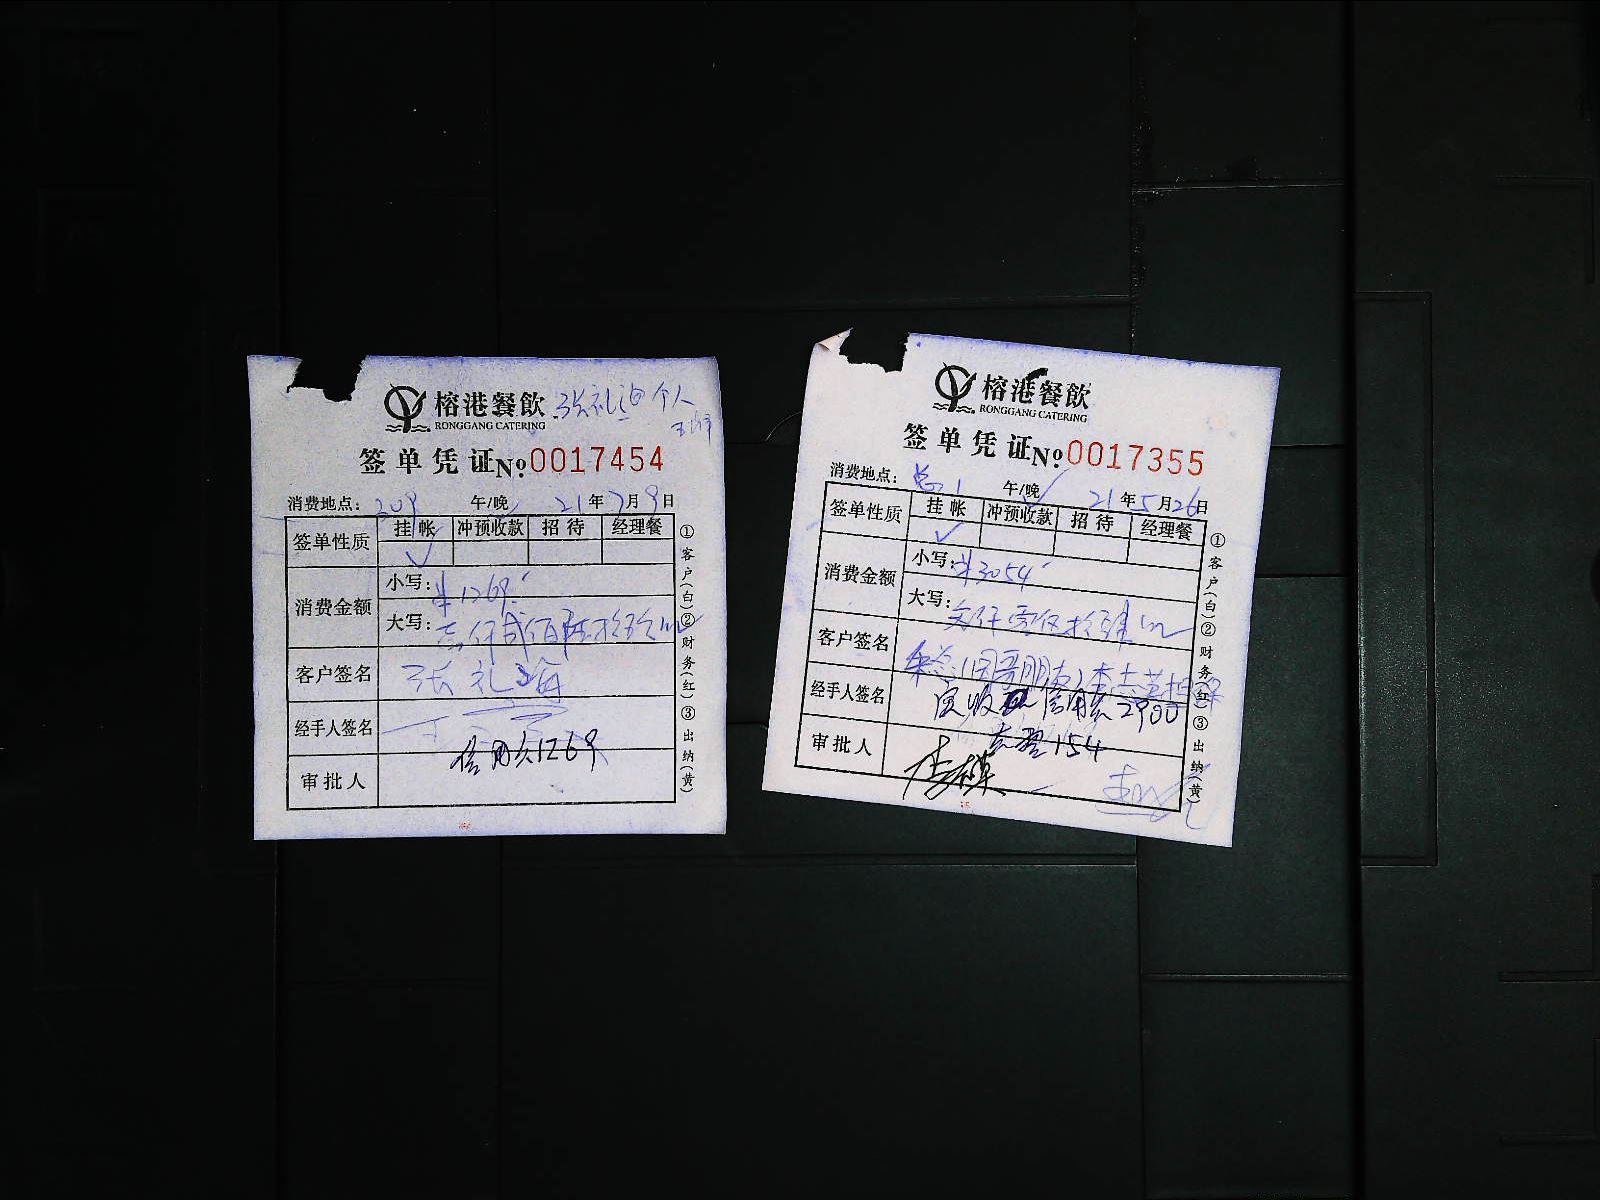 榕港餐飲 张礼海 个人
RONGGANG CATERING
签单凭证 No.0017454
消费地点: 209 午/晚 21年7月9日
签单性质 挂帐 冲预收款 招待 经理餐
✓
消费金额 小写: ¥1269
大写: 壹仟贰佰陆拾玖
客户签名 张礼海
经手人签名
信用卡1269
审批人
①客户(白)②财务(红)③出纳(黄)
榕港餐飲
RONGGANG CATERING
签单凭证 No.0017355
消费地点: 午/晚✓ 21年5月26日
签单性质 挂帐 冲预收款 招待 经理餐
✓
消费金额 小写: ¥3054
大写:
客户签名
经手人签名 实收 信用卡2900
154
审批人
①客户(白)②财务(红)③出纳(黄)